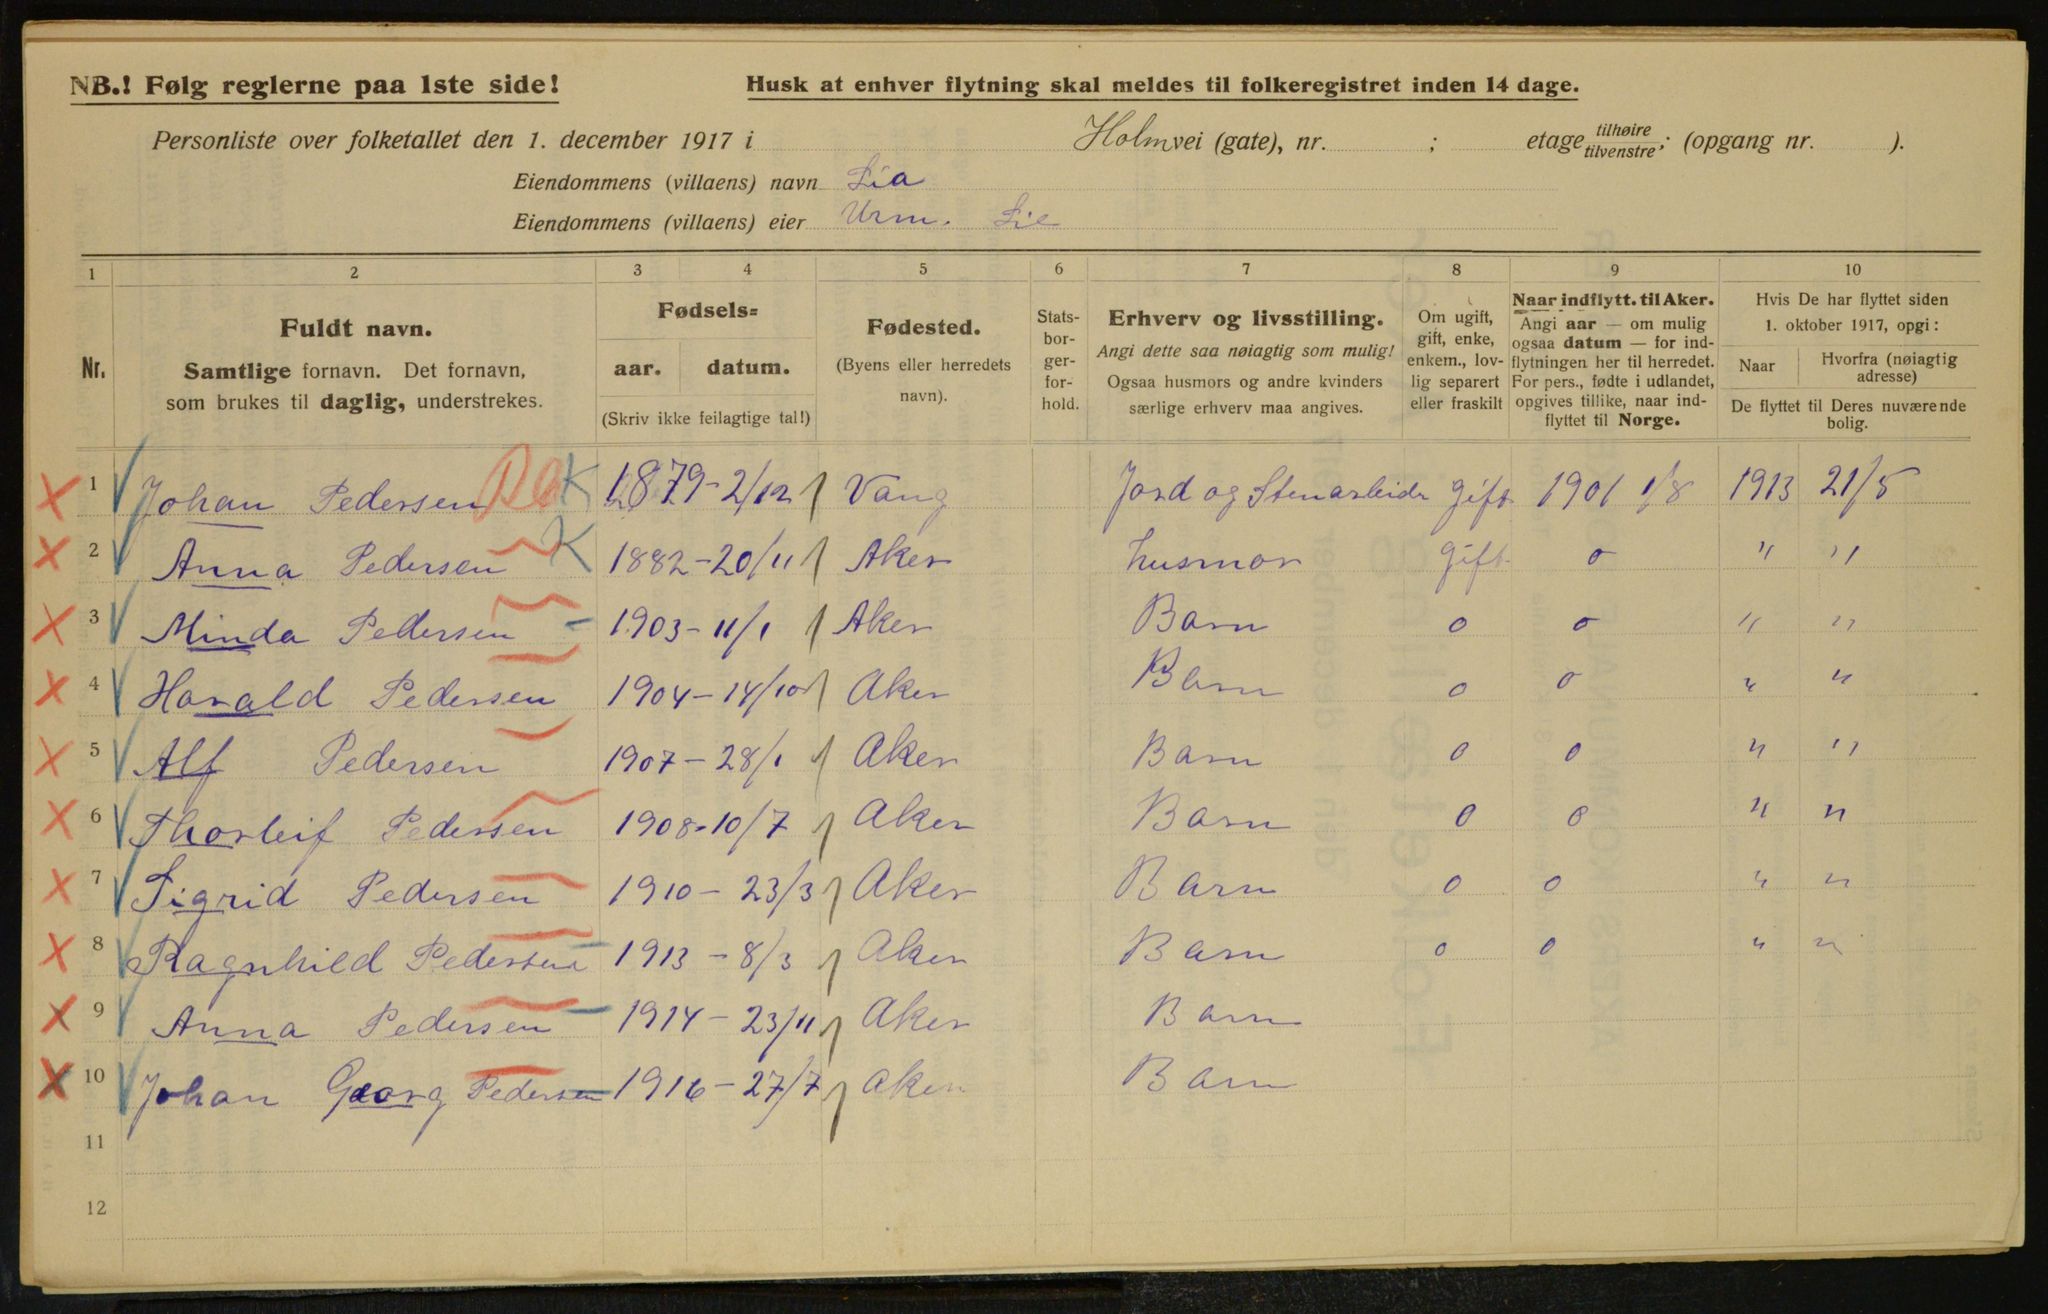 NB.! Følg reglerne paa 1ste side!
Husk at enhver flytning skal meldes til folkeregistret inden 14 dage.
Personliste over folketallet den 1. december 1917 i Holmvei (gate), nr. ; etage tilhøire tilvenstre; (opgang nr. ).
Eiendommens (villaens) navn Lia
Eiendommens (villaens) eier Urm. Lie
1 2 3 4 5 6 7 8 9 10
Nr.
Fuldt navn.
Samtlige fornavn. Det fornavn,
som brukes til daglig, understrekes.
Fødsels=
aar. datum.
(Skriv ikke feilagtige tal!)
Fødested.
(Byens eller herredets
navn).
Stats-
bor-
ger-
for-
hold.
Erhverv og livsstilling.
Angi dette saa nøiagtig som mulig!
Ogsaa husmors og andre kvinders
særlige erhverv maa angives.
Om ugift,
gift, enke,
enkem., lov-
lig separert
eller fraskilt
Naar indflytt. til Aker.
Angi aar — om mulig
ogsaa datum — for ind-
flytningen her til herredet.
For pers., fødte i udlandet,
opgives tillike, naar ind-
flyttet til Norge.
Hvis De har flyttet siden
1. oktober 1917, opgi:
Naar
Hvorfra (nøiagtig
adresse)
De flyttet til Deres nuværende
bolig.
1 Johan Pedersen K 1879 - 2/12 Vang Jord og Stenarbeidr gift 1901 1/8 1913 21/5
2 Anna Pedersen K 1882 - 20/11 Aker husmor gift o " "
3 Minda Pedersen - 1903 - 11/1 Aker Barn o o " "
4 Harald Pedersen 1904 - 14/10 Aker Barn o o " "
5 Alf Pedersen 1907 - 28/1 Aker Barn o o " "
6 Thorleif Pedersen 1908 - 10/7 Aker Barn o o " "
7 Sigrid Pedersen 1910 - 23/3 Aker Barn o o " "
8 Ragnhild Pedersen 1913 - 8/3 Aker Barn o o " "
9 Anna Pedersen - 1914 - 23/11 Aker Barn
10 Johan Georg Pedersen 1916 - 27/7 Aker Barn
11
12